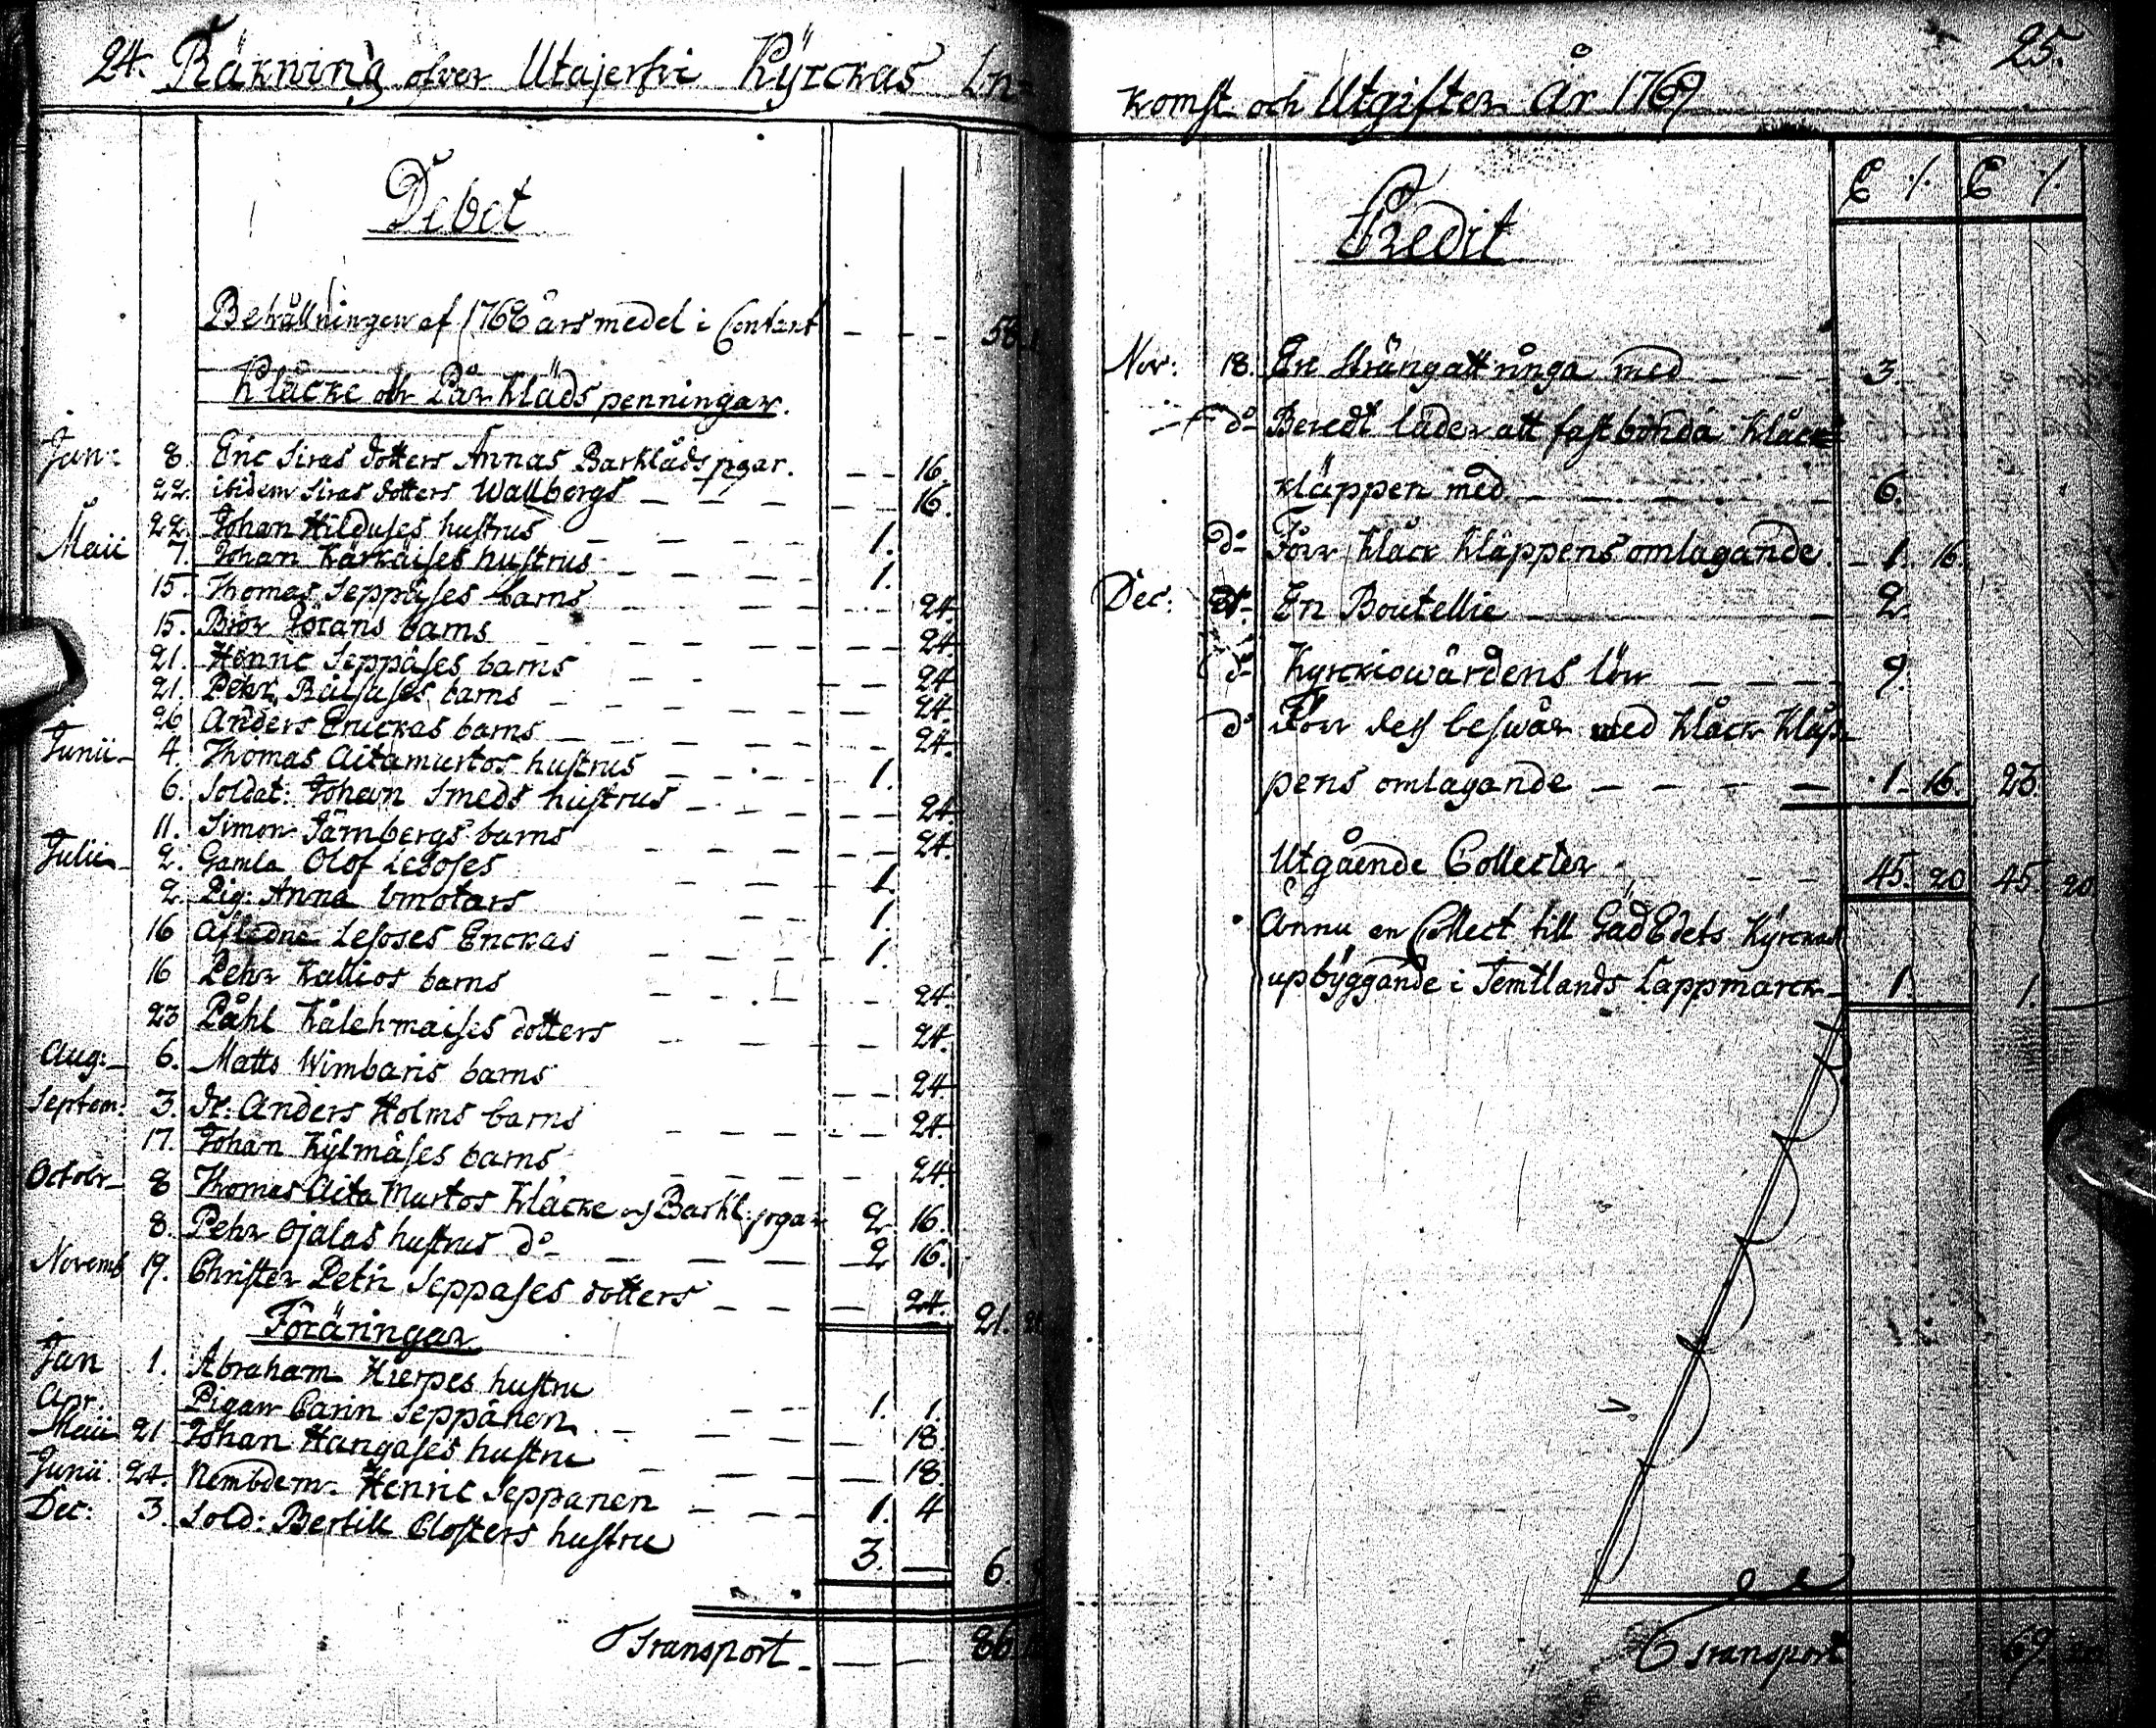 24. Räkning öfver Utajerfvi Kÿrckas In=
Debet
Behållningen af 1768 års medel i Contant — — 58.
Klåcke och Bårklädspenningar.
Jan: 8. Eric Siras dotters Annas Barklädspgar. — — 16
22. ibidem Siras dotters Wallbergs — — — 16.
22. Johan Hilduses hustrus — — — 1.
Maii 7. Johan Karkaises hustrus — — — 1.
15. Thomas Seppäses barns — — — 24.
15. Brör Görans barns — — — 24.
21. Henric Seppäses barns — — — 24.
21. Pehr barns — — — 24.
26 Anders Erickas barns — — — 24.
Junii 4. Thomas Aitamurtos hustrus — — — 1.
6. Soldat: Johan Smeds hustrus — — — 24.
11. Simon Järnbergs barns — — — 24.
Julii 2. Gamla Olof Lesoses — — — 1.
2. Pig: Anna — — — 1.
16 Lesoses Enckas — — — 1.
16 Pehr Kallios barns — — — 24.
23 Påhl Kålehmaises dotters — — — 24.
Aug: 6. Matts Wimbaris barns — — 24.
Septem: 3. Anders Holms barns — — — 24.
17. Johan Kÿlmäses barns — — — 24.
Octobr 8 Thomas Aita Murtos Klåcke och Barkl: pgar 2 16.
8. Pehr Ojalas hustrus do — — — 2 16.
Novemb 19. Christer Petri Seppäses dotters — — — 24. 21.
Föräringar
Jan 1. Abraham Hierpes hustru — — 1. 1.
Apr: Pigan Carin Seppänen — — — 18.
Maii 21 Johan Hangases hustru — — — 18.
Junii 24. Nembdem. Henric Seppanen — — — 1. 4
Dec: 3. Sold: Bertill Closters hustru 3. — 6.
Transport — — 86.
25.
komst och Utgifter År 1769
Credit
Nov: 18. En sträng att ringa med — — 3.
do Beredt läder att fastbinda klåck=
kläppen med — — — 6.
do Förr klåck kläppens omlagande — 1. 16.
Dec: En Boutellie — — — 2.
do Kyrckiowärdens lön — — — 9.
do Förr des beswär med klåck kläp-
pens omlagande — — — 1. 16. 23.
Utgående Collecter — — 45. 20 45. 20
Ännu en Collect till GädEdets Kyrckas
upbÿggande i Jemtlands Lappmarck 1. 1.
Transport 69